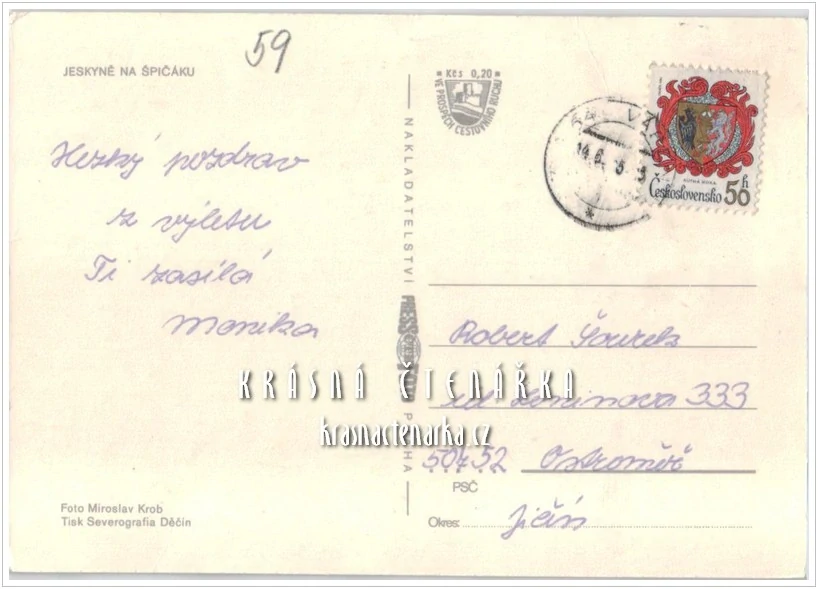 59
JESKYNĚ NA ŠPIČÁKU
Hezký pozdrav
z výletu
Ti zasílá
Monika
Foto Miroslav Krob
Tisk Severografia Děčín
NAKLADATELSTVÍ PRESSFOTO PRAHA
Kčs 0,20
VE PROSPĚCH CESTOVNÍHO RUCHU
KUTNÁ HORA
Československo 50 h
Robert Šourek
ul. Leninova 333
507 52 Ostroměř
PSČ
Okres: Jičín
KRÁSNÁ ČTENÁŘKA
krasnactenarka.cz